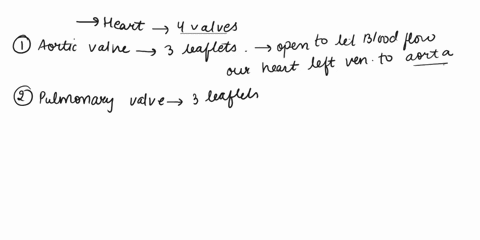 → Heart → 4 valves
① Aortic valve → 3 leaflets. → open to let Blood flow
our heart left ven. to aorta
② Pulmonary valve → 3 leaflets